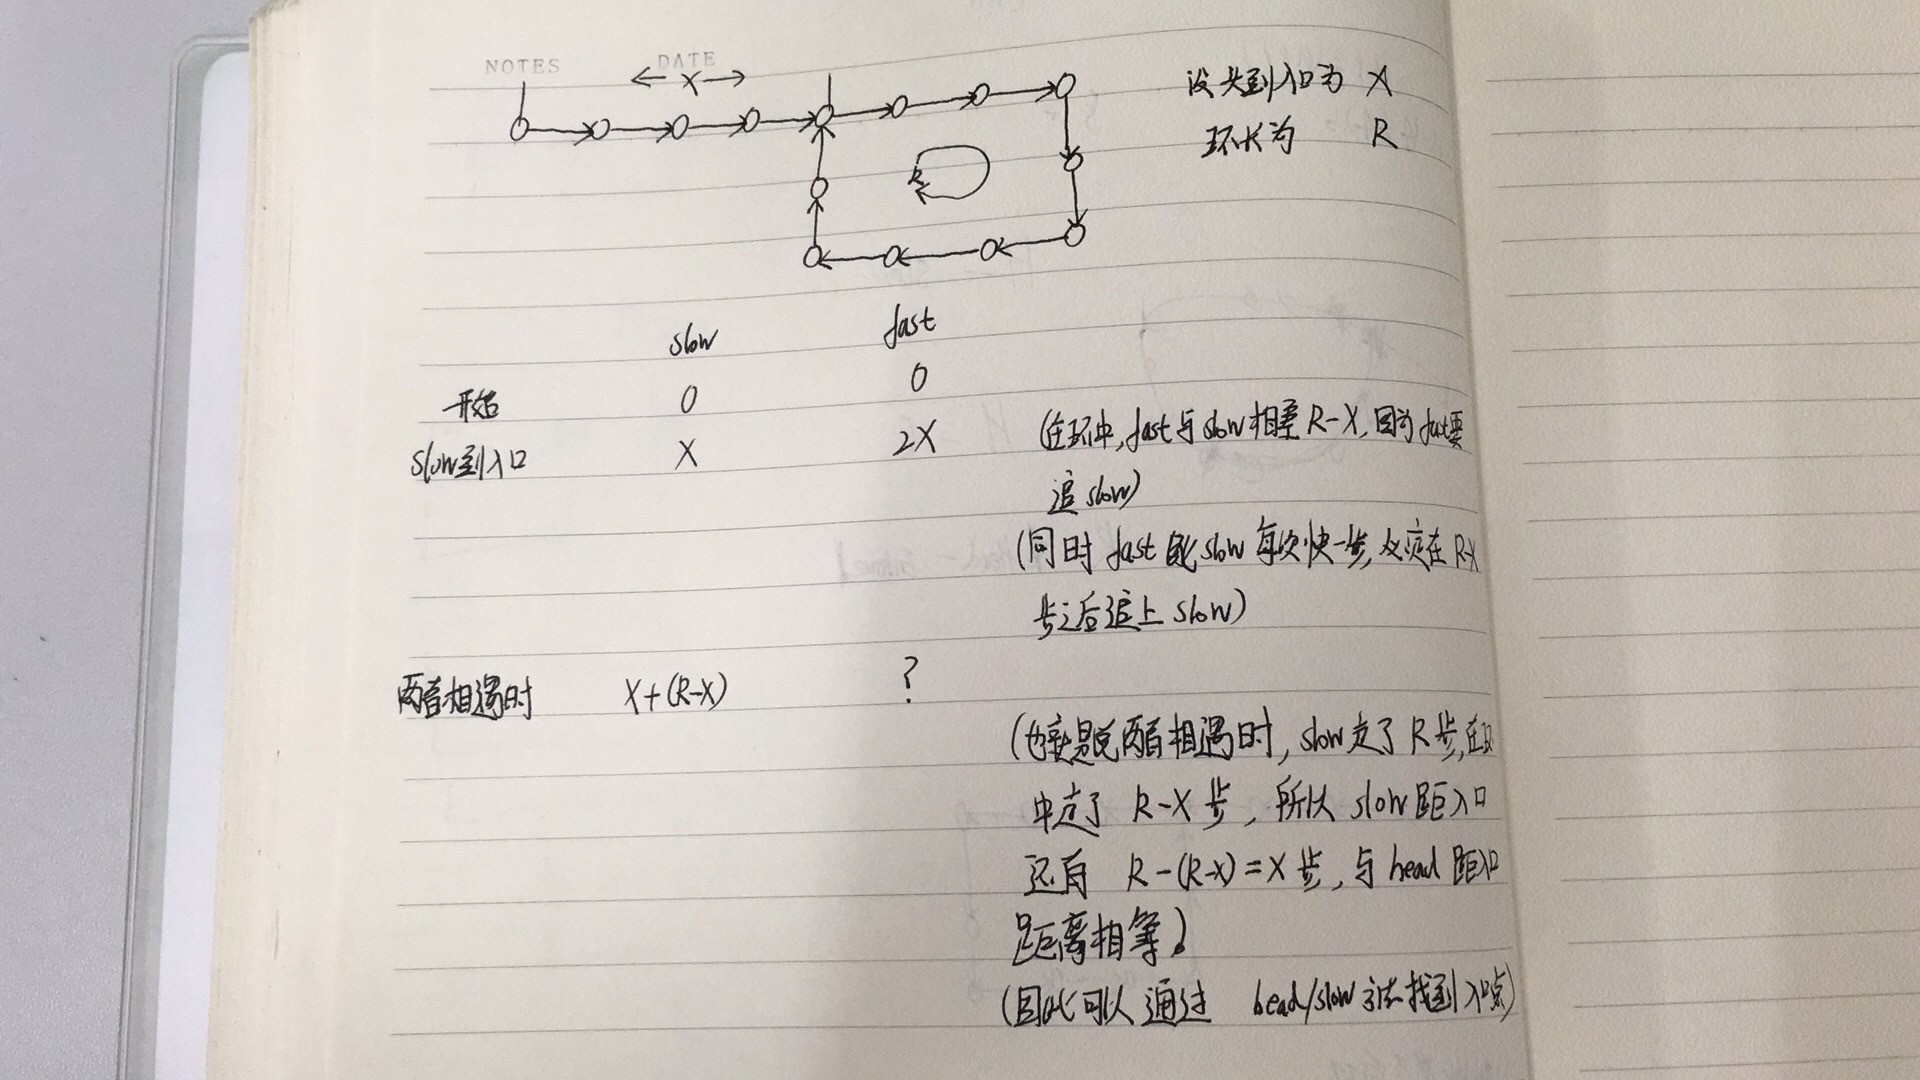 NOTES DATE
← X →
设头到入口为 X
环长为 R
R
slow fast
开始 0 0
slow到入口 X 2X (在环中,fast与slow相差R-X,因为fast要
追slow)
(同时fast比slow每次快一步,必定在R-X
步之后追上slow)
两者相遇时 X+(R-X) ?
(也就是说两者相遇时,slow走了R步,在环
中走了R-X步,所以slow距入口
还有 R-(R-X)=X步,与head距入口
距离相等)
(因此可以通过 head/slow 方法找到入口点)